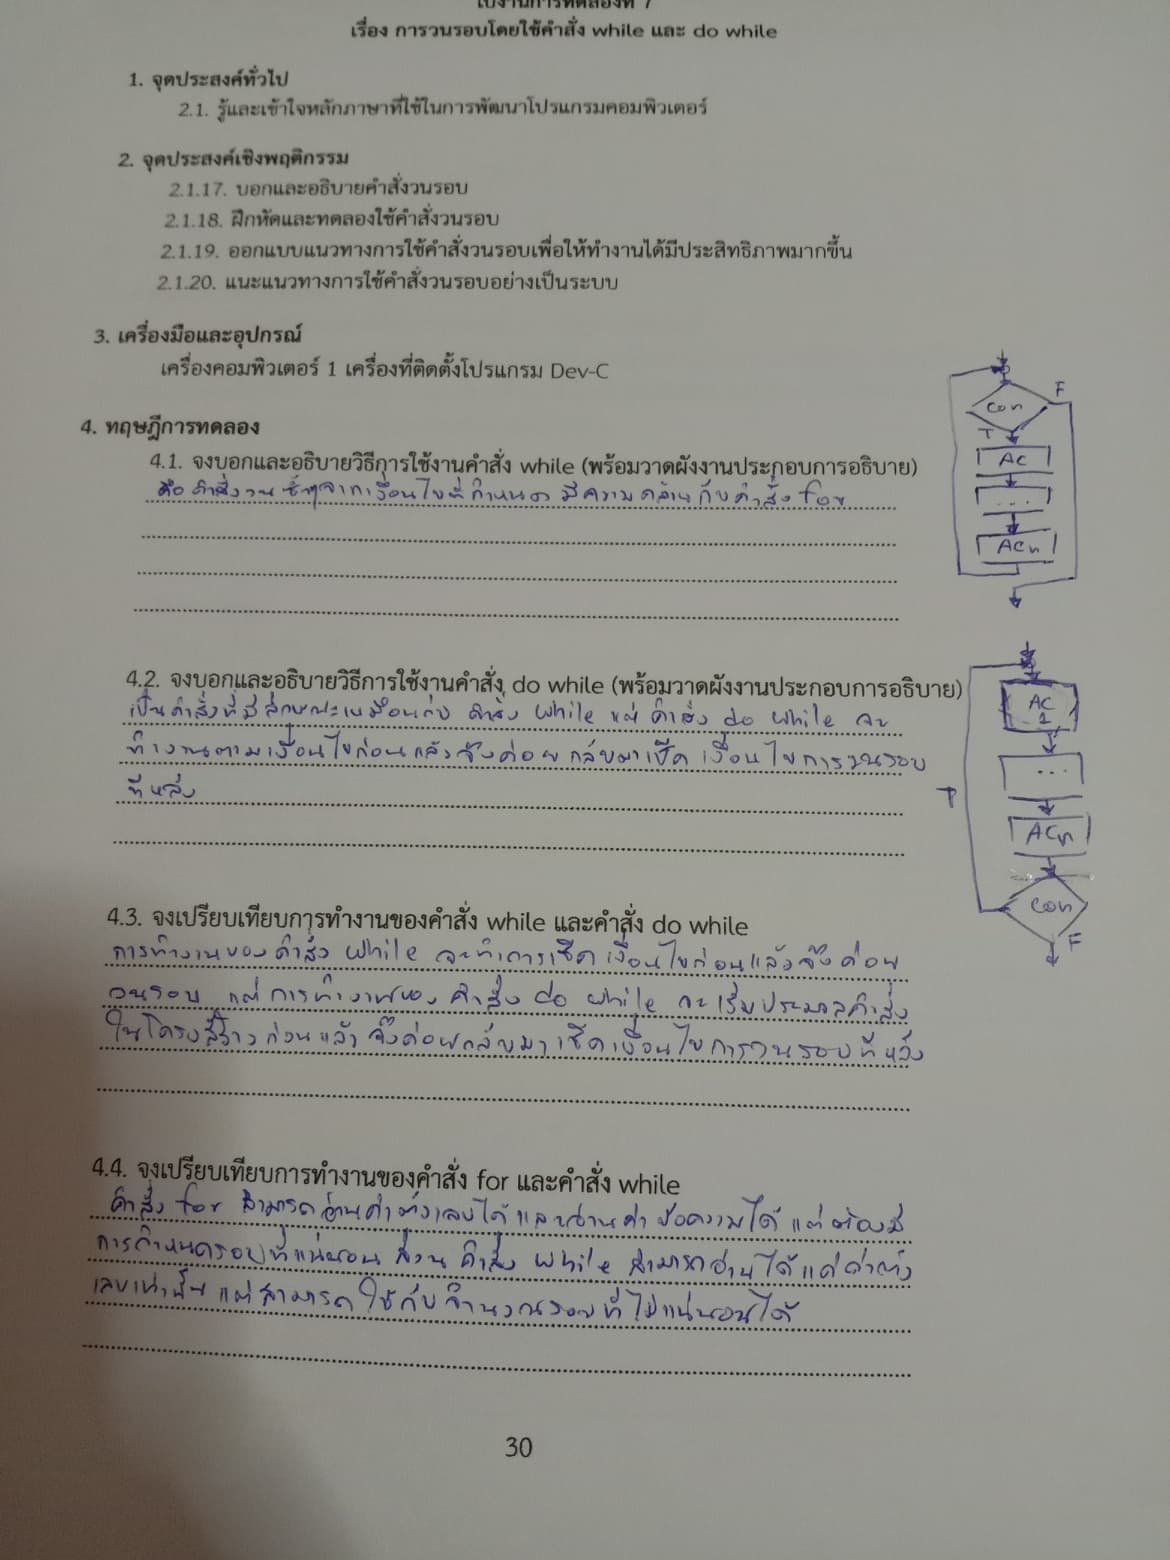 ใบงานการทดลองที่ 7
เรื่อง การวนรอบโดยใช้คำสั่ง while และ do while
1. จุดประสงค์ทั่วไป
2.1. รู้และเข้าใจหลักภาษาที่ใช้ในการพัฒนาโปรแกรมคอมพิวเตอร์
2. จุดประสงค์เชิงพฤติกรรม
2.1.17. บอกและอธิบายคำสั่งวนรอบ
2.1.18. ฝึกหัดและทดลองใช้คำสั่งวนรอบ
2.1.19. ออกแบบแนวทางการใช้คำสั่งวนรอบเพื่อให้ทำงานได้มีประสิทธิภาพมากขึ้น
2.1.20. แนะแนวทางการใช้คำสั่งวนรอบอย่างเป็นระบบ
3. เครื่องมือและอุปกรณ์
เครื่องคอมพิวเตอร์ 1 เครื่องที่ติดตั้งโปรแกรม Dev-C
4. ทฤษฎีการทดลอง
4.1. จงบอกและอธิบายวิธีการใช้งานคำสั่ง while (พร้อมวาดผังงานประกอบการอธิบาย)
คือ คำสั่งวน ซ้ำๆจากเงื่อนไขที่กำหนด มีความคล้ายกับคำสั่ง for
F
con
T
AC
...
ACn
4.2. จงบอกและอธิบายวิธีการใช้งานคำสั่ง do while (พร้อมวาดผังงานประกอบการอธิบาย)
เป็นคำสั่งที่มีลักษณะเหมือนกับ คำสั่ง while แต่ คำสั่ง do while จะ
ทำงานตามเงื่อนไขก่อนแล้วจึงค่อย กลับมาเช็ค เงื่อนไขการวนรอบ
ทีหลัง
AC
1
...
T
ACn
con
F
4.3. จงเปรียบเทียบการทำงานของคำสั่ง while และคำสั่ง do while
การทำงานของ คำสั่ง while จะทำการเช็ค เงื่อนไขก่อนแล้วจึงค่อย
วนรอบ แต่ การทำงานของ คำสั่ง do while จะเริ่มประมวลคำสั่ง
ในโครงสร้างก่อนแล้ว จึงค่อยกลับมาเช็คเงื่อนไขการวนรอบทีหลัง
4.4. จงเปรียบเทียบการทำงานของคำสั่ง for และคำสั่ง while
คำสั่ง for สามารถอ่านค่าตัวเลขได้และอ่านค่า ข้อความได้ แต่ ต้องมี
การกำหนดรอบที่แน่นอน ส่วน คำสั่ง while สามารถอ่านได้แค่ค่าตัว
เลขเท่านั้น แต่สามารถ ใช้กับ จำนวนรอบที่ ไม่แน่นอนได้
30